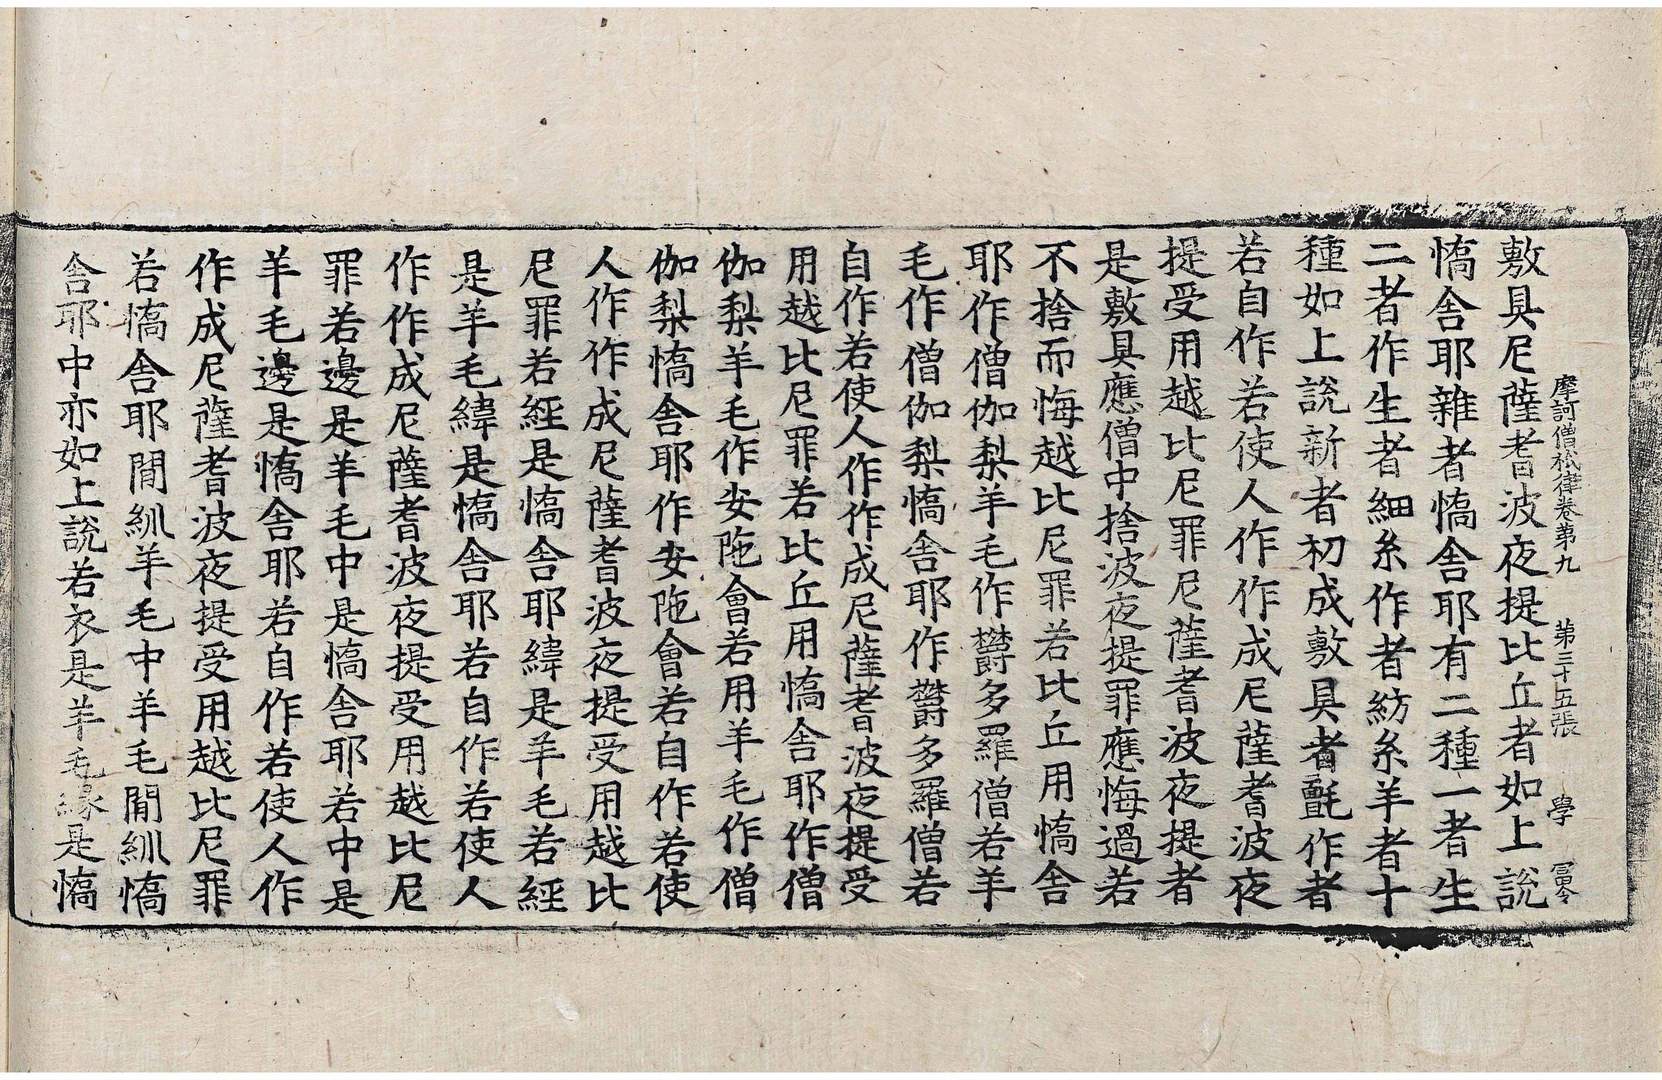 摩訶僧祇律卷第九　第三十五張　學　冨令
敷具尼薩耆波夜提比丘者如上說
憍舍耶雜者憍舍耶有二種一者生
二者作生者細糸作者紡糸羊者十
種如上說新者初成敷具者氈作者
若自作若使人作作成尼薩耆波夜
提受用越比尼罪尼薩耆波夜提者
是敷具應僧中捨波夜提罪應悔過若
不捨而悔越比尼罪若比丘用憍舍
耶作僧伽梨羊毛作欝多羅僧若羊
毛作僧伽梨憍舍耶作欝多羅僧若
自作若使人作作成尼薩耆波夜提受
用越比尼罪若比丘用憍舍耶作僧
伽梨羊毛作安陁會若用羊毛作僧
伽梨憍舍耶作安陁會若自作若使
人作作成尼薩耆波夜提受用越比
尼罪若經是憍舍耶緯是羊毛若經
是羊毛緯是憍舍耶若自作若使人
作作成尼薩耆波夜提受用越比尼
罪若邊是羊毛中是憍舍耶若中是
羊毛邊是憍舍耶若自作若使人作
作成尼薩耆波夜提受用越比尼罪
若憍舍耶間紃羊毛中羊毛間紃憍
舍耶中亦如上說若衣是羊毛緣是憍